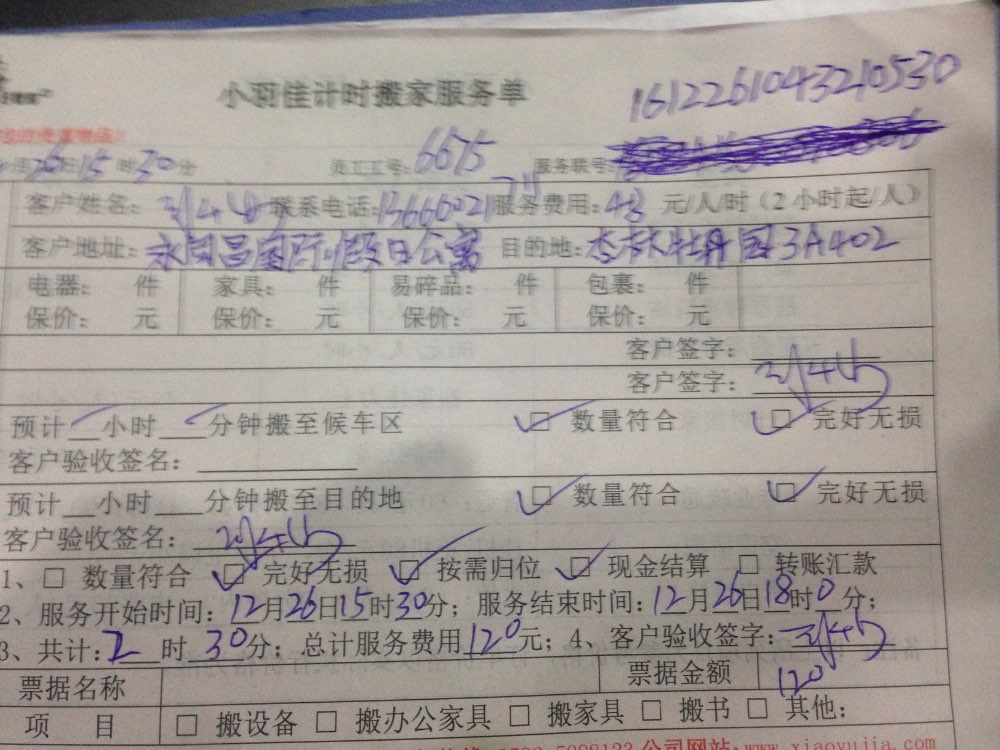 小羽佳计时搬家服务单
1612261043210530
26日15时30分 员工工号:6675 服务联号:
客户姓名: 联系电话: 服务费用:48元/人/时（2小时起/人）
客户地址: 永同昌国际假日公寓 目的地: 杏林牡丹园3A402
电器: 件 家具: 件 易碎品: 件 包裹: 件
保价: 元 保价: 元 保价: 元 保价: 元
客户签字:
客户签字:
预计__小时___分钟搬至候车区 □ 数量符合 □ 完好无损
客户验收签名:
预计__小时___分钟搬至目的地 □ 数量符合 □ 完好无损
客户验收签名:
1、□ 数量符合 □ 完好无损 □ 按需归位 □ 现金结算 □ 转账汇款
2、服务开始时间:12月26日15时30分；服务结束时间:12月26日18时0分；
3、共计:2时30分；总计服务费用120元；4、客户验收签字:
票据名称 票据金额 120
项 目 □ 搬设备 □ 搬办公家具 □ 搬家具 □ 搬书 □ 其他:
公司网站:www.xiaoyujia.com